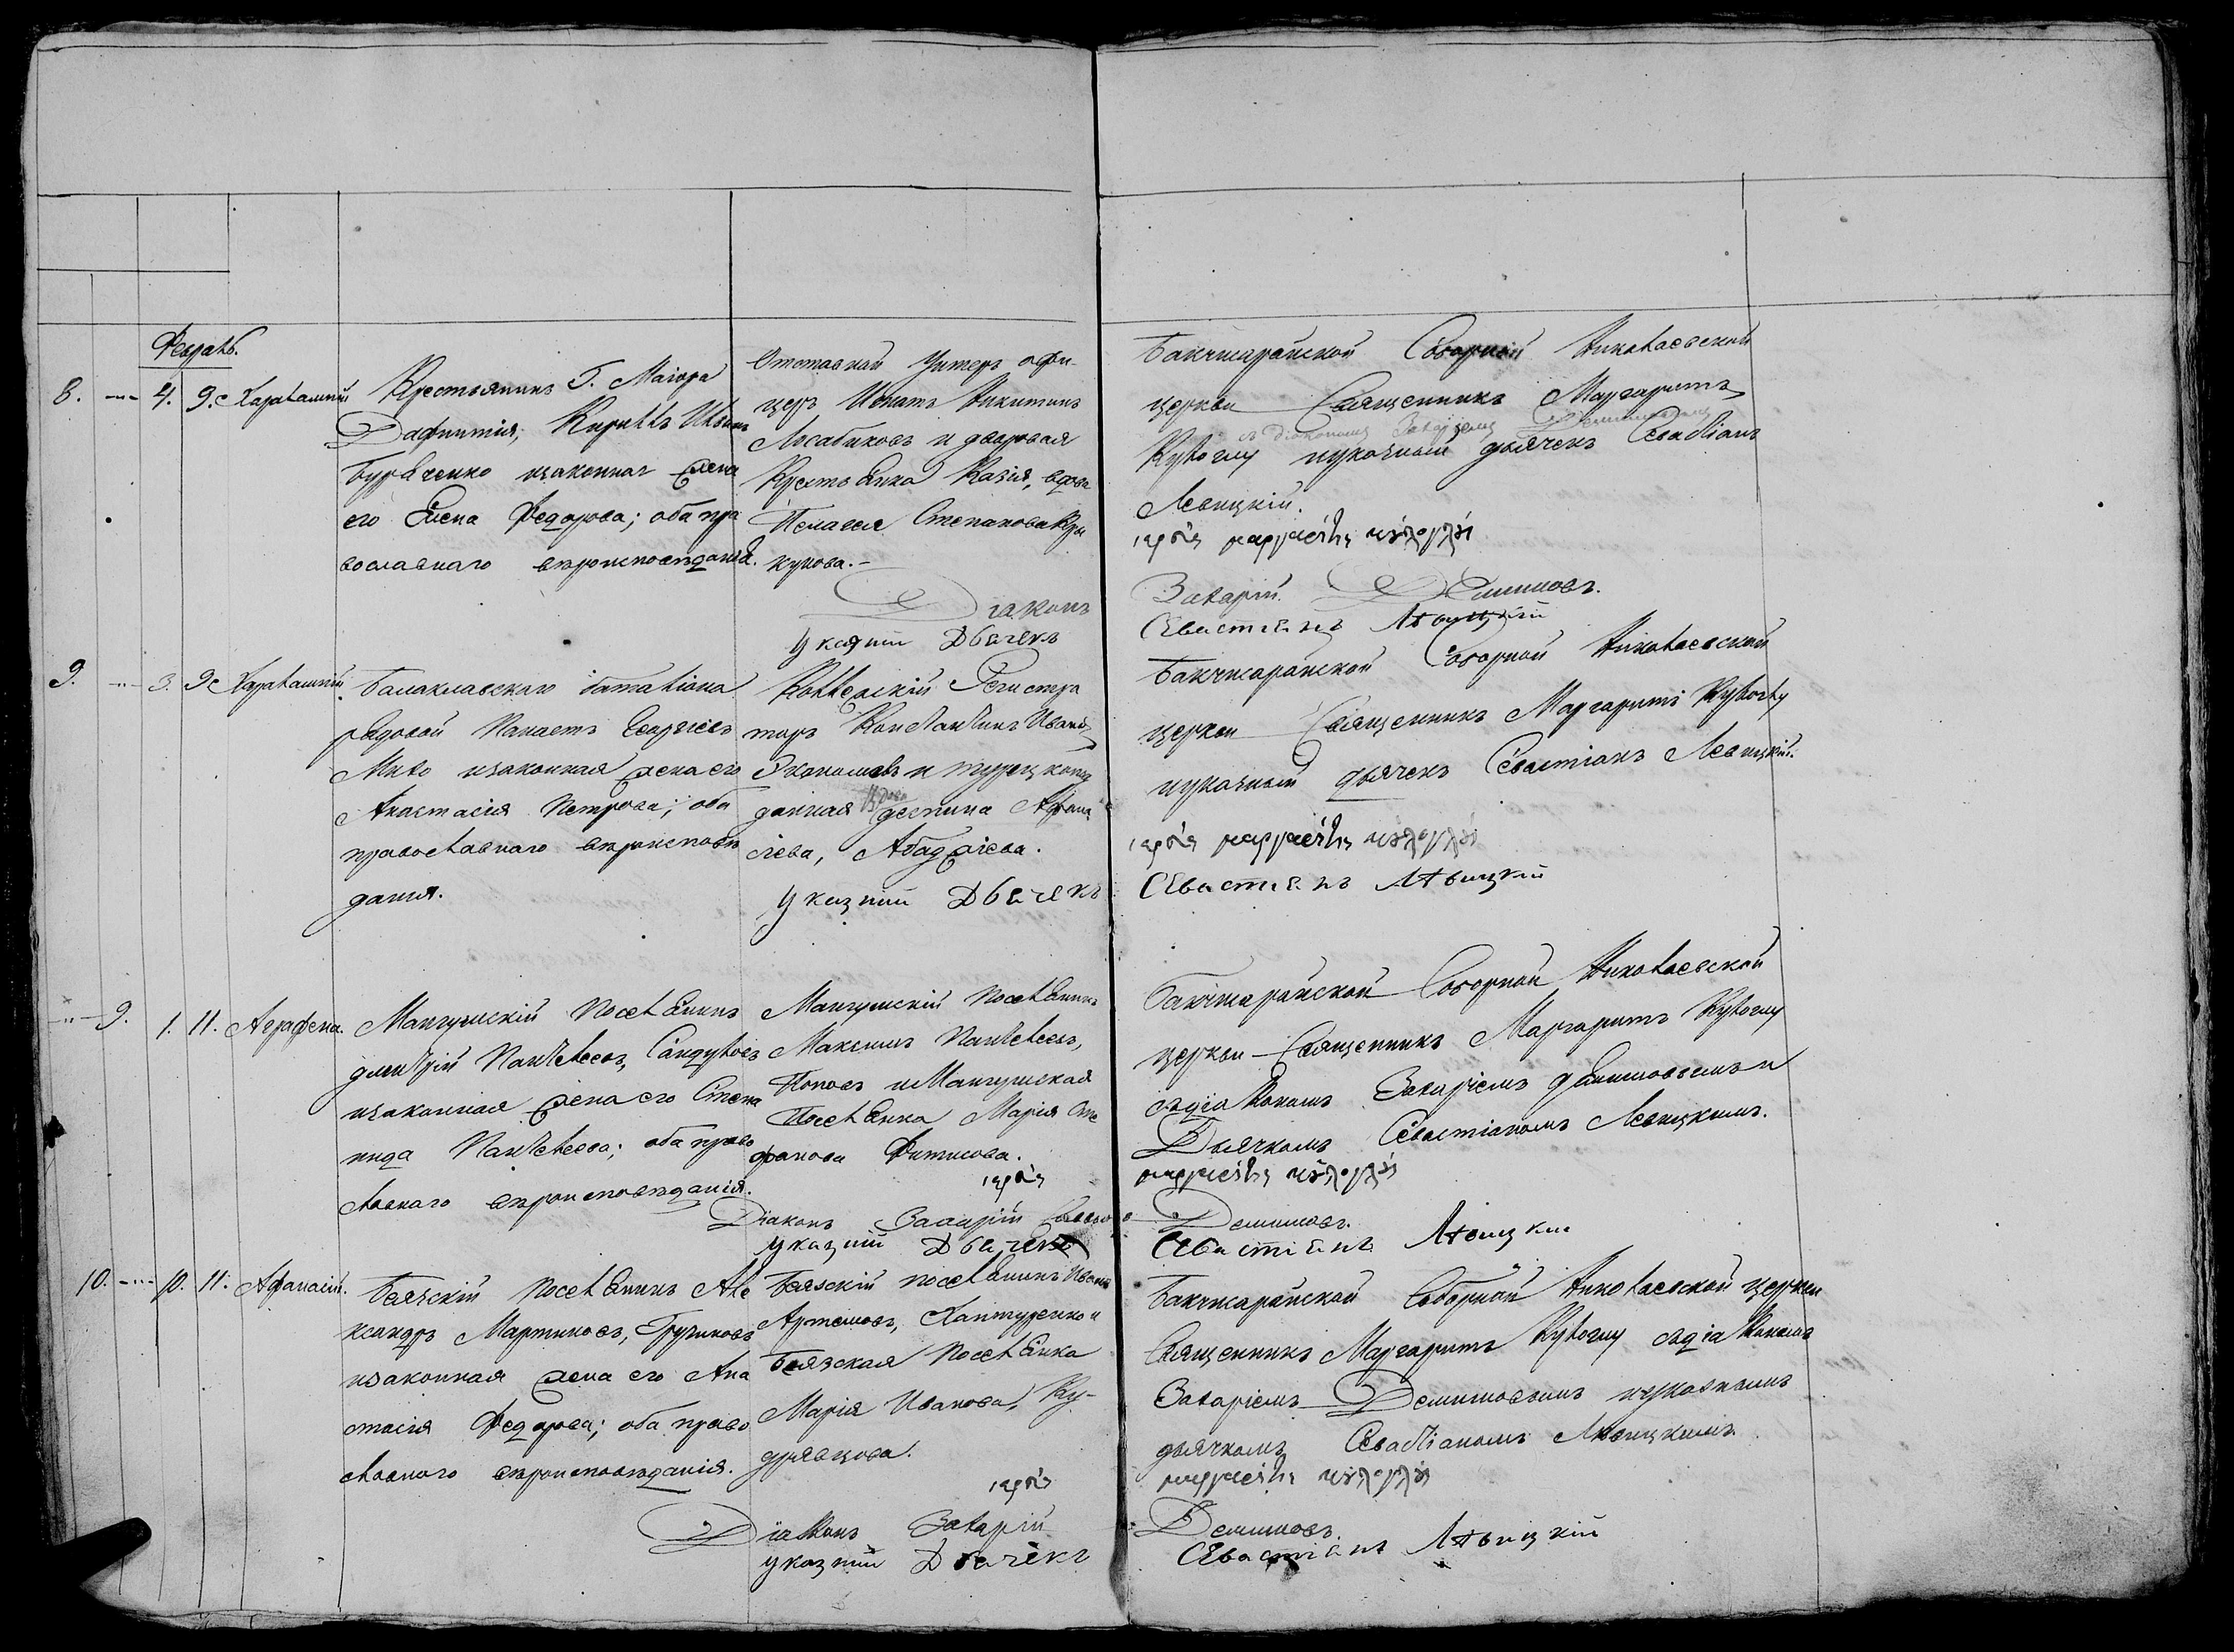 Февраль.
8. 4. 9. Харалампій
Крестьянинъ Г. Маіора
Дафнитія, Кириллъ
Бурѧченко изаконная жена
его Елена Федорова; оба пра
вославнаго вѣроисповѣданія.
Отставной Унтеръ офи-
церъ Игнатъ Никитинъ
Лосабиковъ и дворовая
Крестьянка Казія, вдова
Пелагея Степанова
кукова.-
Діаконъ
Указній Дьячекъ
Бакчисарайской Соборной Николаевской
церкви Священникъ Маргаритъ
съ діакономъ Захаріемъ
Кулоглу иуказный дьячекъ Севастіанъ
Левицкій.
Захарій Демишовъ.
Севастіанъ Лѣвицкій
9. 3. 9. Харалампій
Балаклавскаго баталіона
рядовой Панаетъ Георгіевъ
изаконная жена его
Анастасія Петрова; оба
православнаго вѣроисповѣ
данія.
Коллежскій Регистра
торъ Константинъ Ивано
и турецкопод
данная вдова деспина Афана
сіева, Абаджіева.
Указній Дьячекъ
Бакчисарайской Соборной Николаевской
церкви Священникъ Маргаритъ Кулоглу
иуказный дьячекъ Севастіанъ Левицкій.
Севастіанъ Лѣвицкій
9. 1. 11. Аграфена.
Мангушскій Поселянинъ
дмитрій Пантелеевъ, Сандуловъ
изаконная жена его Степа
нида Пантелеева; оба право
славнаго вѣроисповѣданія.
Мангушскій Поселянинъ
Максимъ Пантелеевъ,
Поповъ и Мангушская
Поселянка Марія Сте
фанова Фитисова.
Діаконъ Захарій
Указній Дьячекъ
Бакчисарайской Соборной Николаевской
церкви Священникъ Маргаритъ Кулоглу
съдіакономъ Захаріемъ Демишовымъ и
Дьячкомъ Севастіаномъ Левицкимъ.
Демишовъ.
Севастіанъ Лѣвицкій
10. 10. 11. Афанасій.
Бѣязскій Поселянинъ Але
ксандръ Мартиновъ, Грузиновъ
изаконная жена его Ана
стасія Федорова; оба право
славнаго вѣроисповѣданія.
Бѣязскій поселянинъ Иванъ
Артемовъ, Хантуренко и
Бѣязская Поселянка
Марія Иванова, Ку-
дрявцова.
Діаконъ Захарій
Указній Дьячекъ
Бакчисарайской Соборной Николаевской церкви
Священникъ Маргаритъ Кулоглу съдіакономъ
Захаріемъ Демишовымъ иуказнымъ
дьячкомъ Севастіаномъ Левицкимъ.
Демишовъ.
Севастіанъ Лѣвицкій